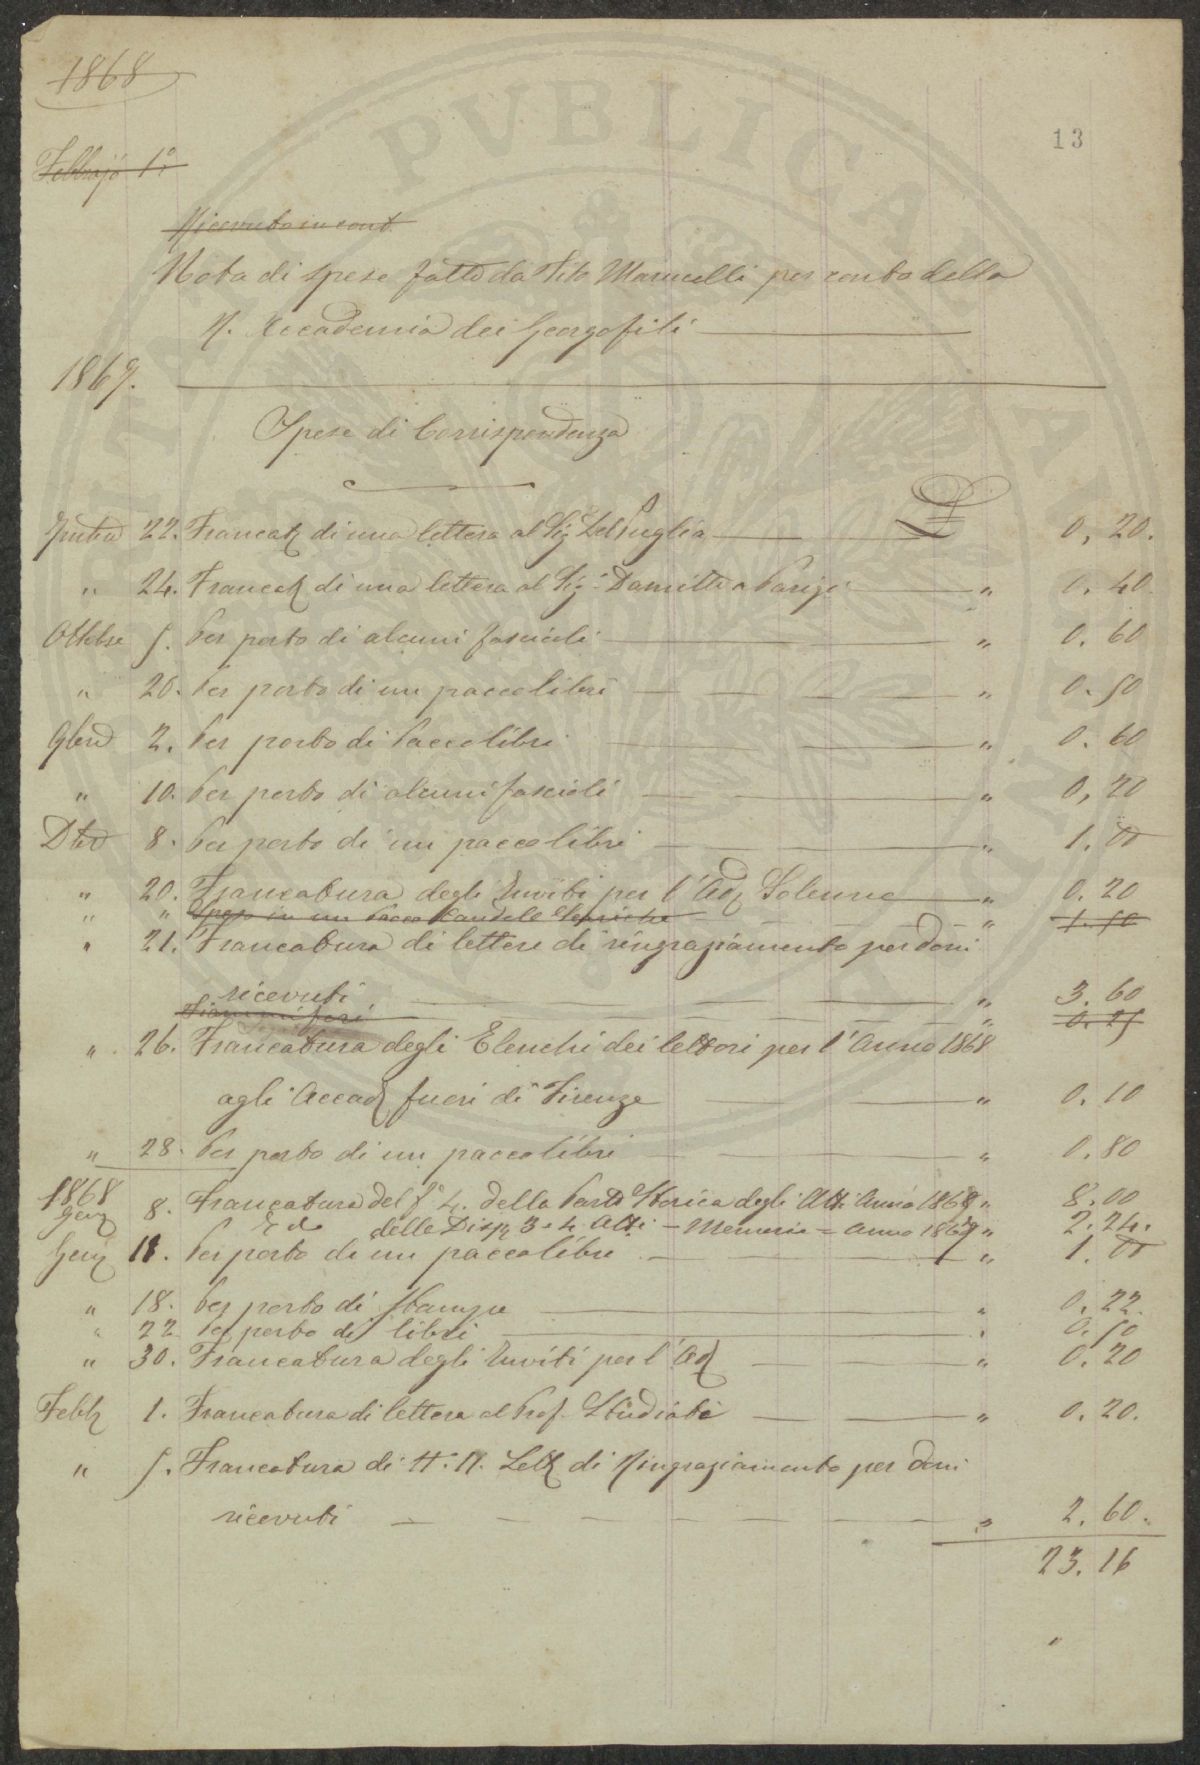 1868
13
Febbrajo 1°
Ricevuto in cont.
Nota di spese fatte da Tito Marucelli per conto della
R. Accademia dei Georgofili
1867.
Spese di Corrispondenza
22. Francat di una lettera al Sig Del Puglia £ 0, 20.
" 24. Francat di una lettera al Sig. a Parigi " 0. 40
Ottobre 5. Per porto di alcuni fascicoli " 0. 60
" 26. Per porto di un pacco libri " 0. 50
9bre 2. Per porto di Pacco libri " 0. 60
" 10. Per porto di alcuni fascicoli " 0, 20
Dbre 8. Per porto di un pacco libri " 1. 00
" 20. Francatura degli Inviti per l'Adz Solenne " 0. 20
" " Spesa in un Pacco Candele Steariche " 1. 50
" 21. Francatura di lettere di ringraziamento per doni
ricevuti " 3. 60
Fiammiferi " 0. 25
" 26. Francatura degli Elenchi dei lettori per l'Anno 1868
agli Accad fuori di Firenze " 0. 10
" 28. Per porto di un pacco libri " 0. 80
1868
Gen 8. Francatura del f° 4. della Parte Storica degli Atti Anno 1867 " 8. 00
E da delle Disp 3 e 4. Atti = Memorie = Anno 1867 " 2. 24.
Gen 11. Per porto di un pacco libri " 1. 00
" 18. Per porto di Stampe " 0. 22.
" 22 Per porto di libri " 0. 50
" 30. Francatura degli Inviti per l'Ad " 0. 20
Febb 1. Francatura di lettera al Prof. Studiati " 0. 20.
" 5. Francatura di Lett di Ringraziamento per doni
ricevuti " 2. 60.
23. 16
"
PVBLICA